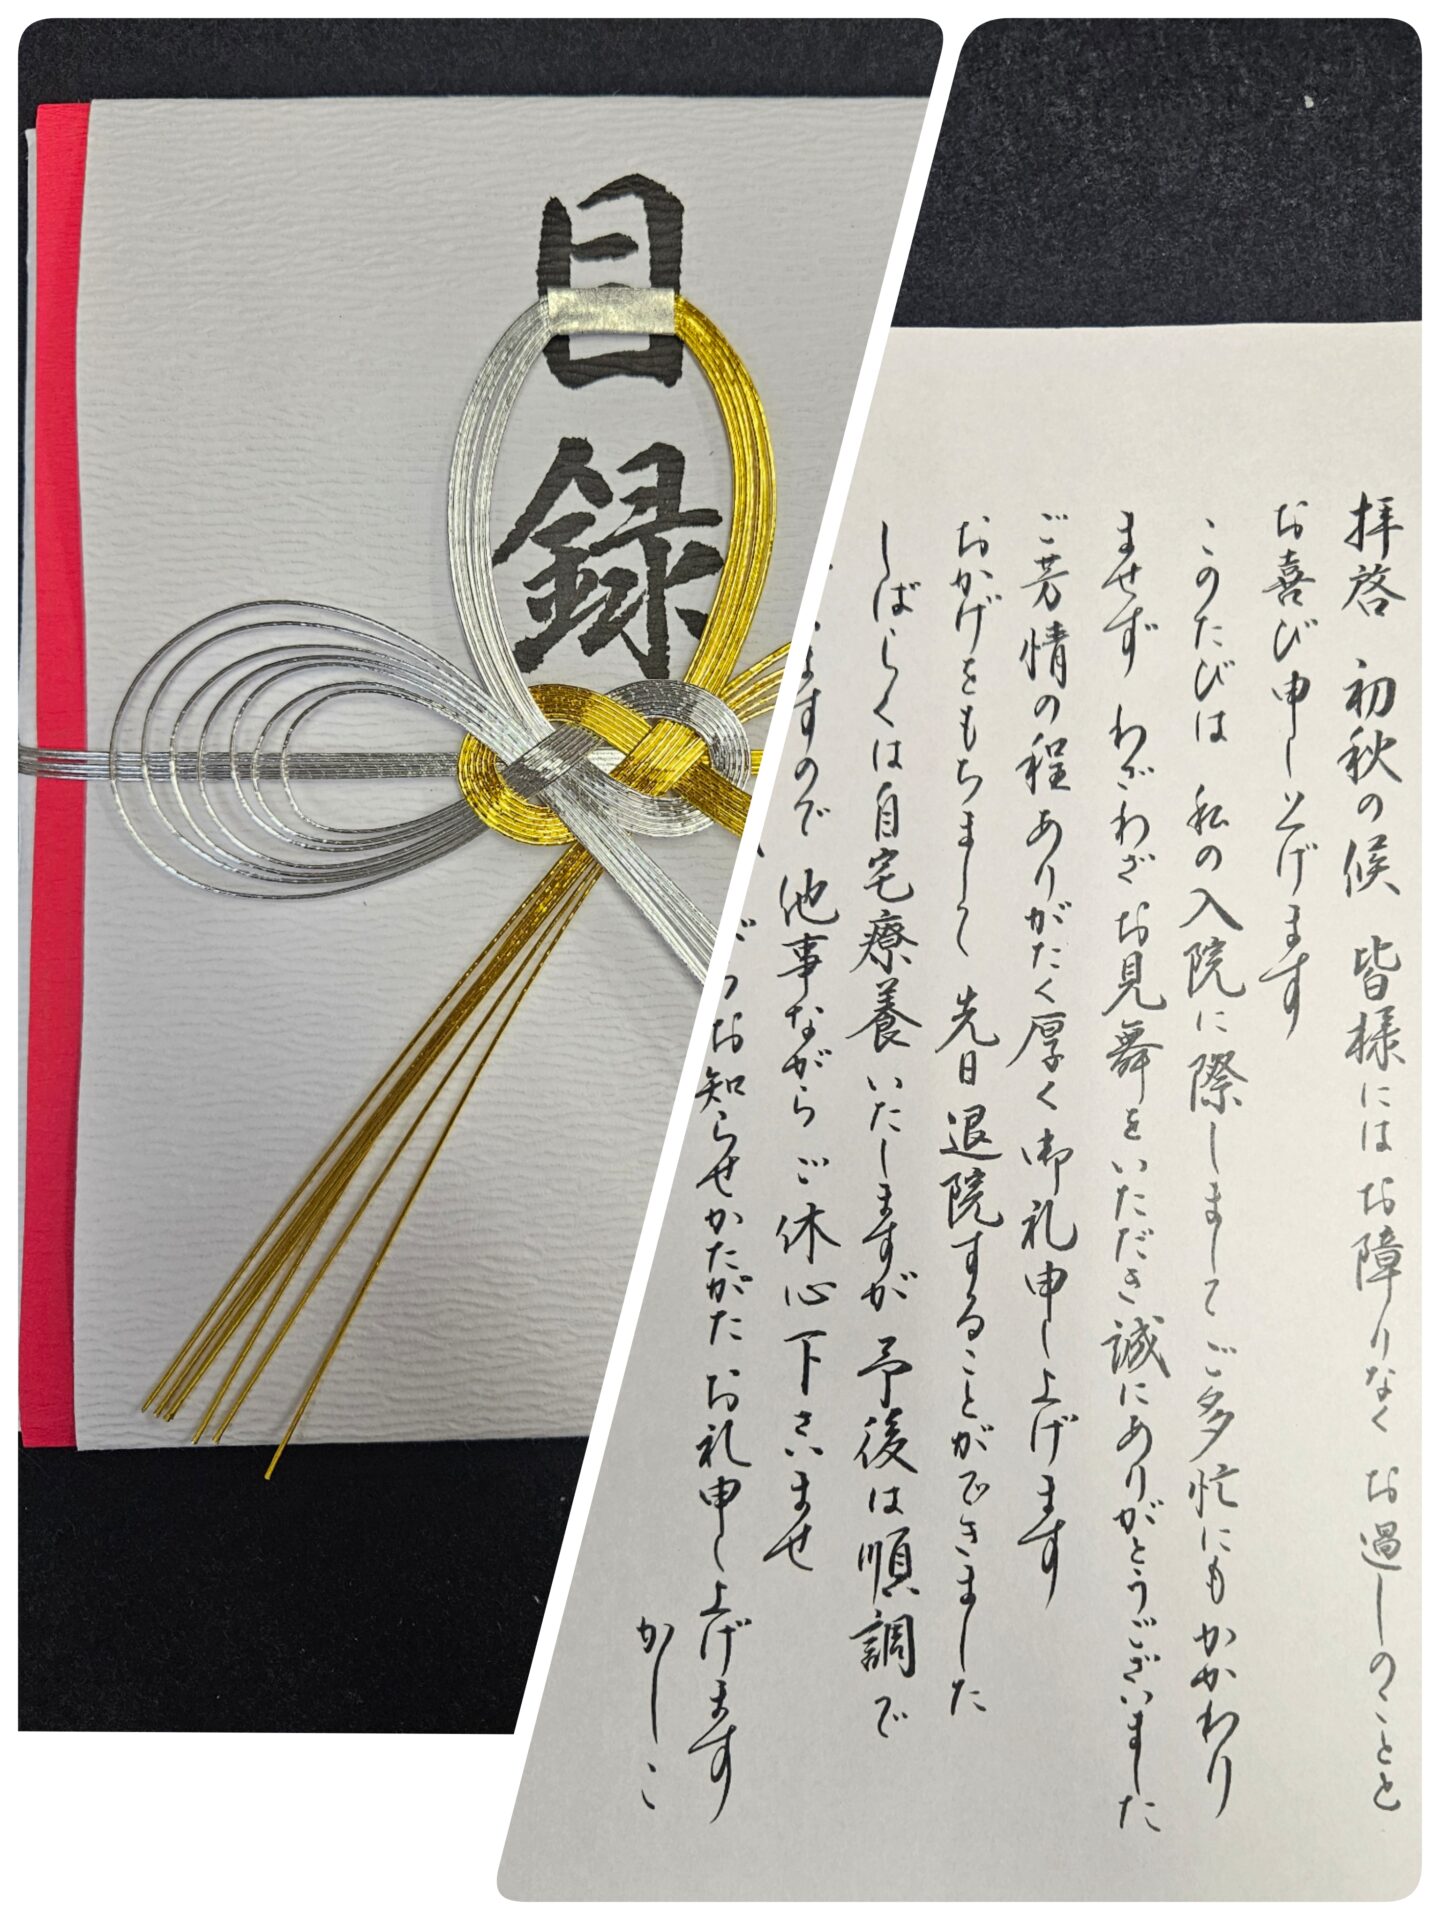 目録
拝啓 初秋の候 皆様にはお障りなく お過しのことと
お喜び申し上げます
このたびは 私の入院に際しまして ご多忙にもかかわり
ませず わざわざお見舞をいただき誠にありがとうございました
ご芳情の程ありがたく厚く御礼申し上げます
おかげをもちまして 先日退院することができました
しばらくは自宅療養いたしますが 予後は順調で
ますので 他事ながら ご休心下さいませ
お知らせかたがた お礼申し上げます
かしこ